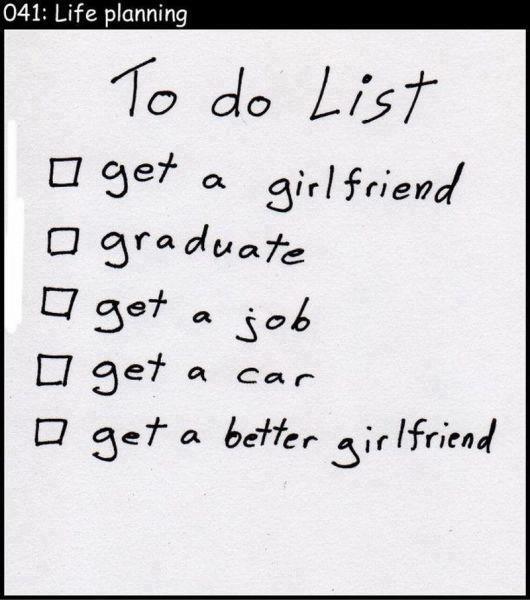 041: Life planning
To do List
get a girlfriend
graduate
get a job
get a car
get a better girlfriend